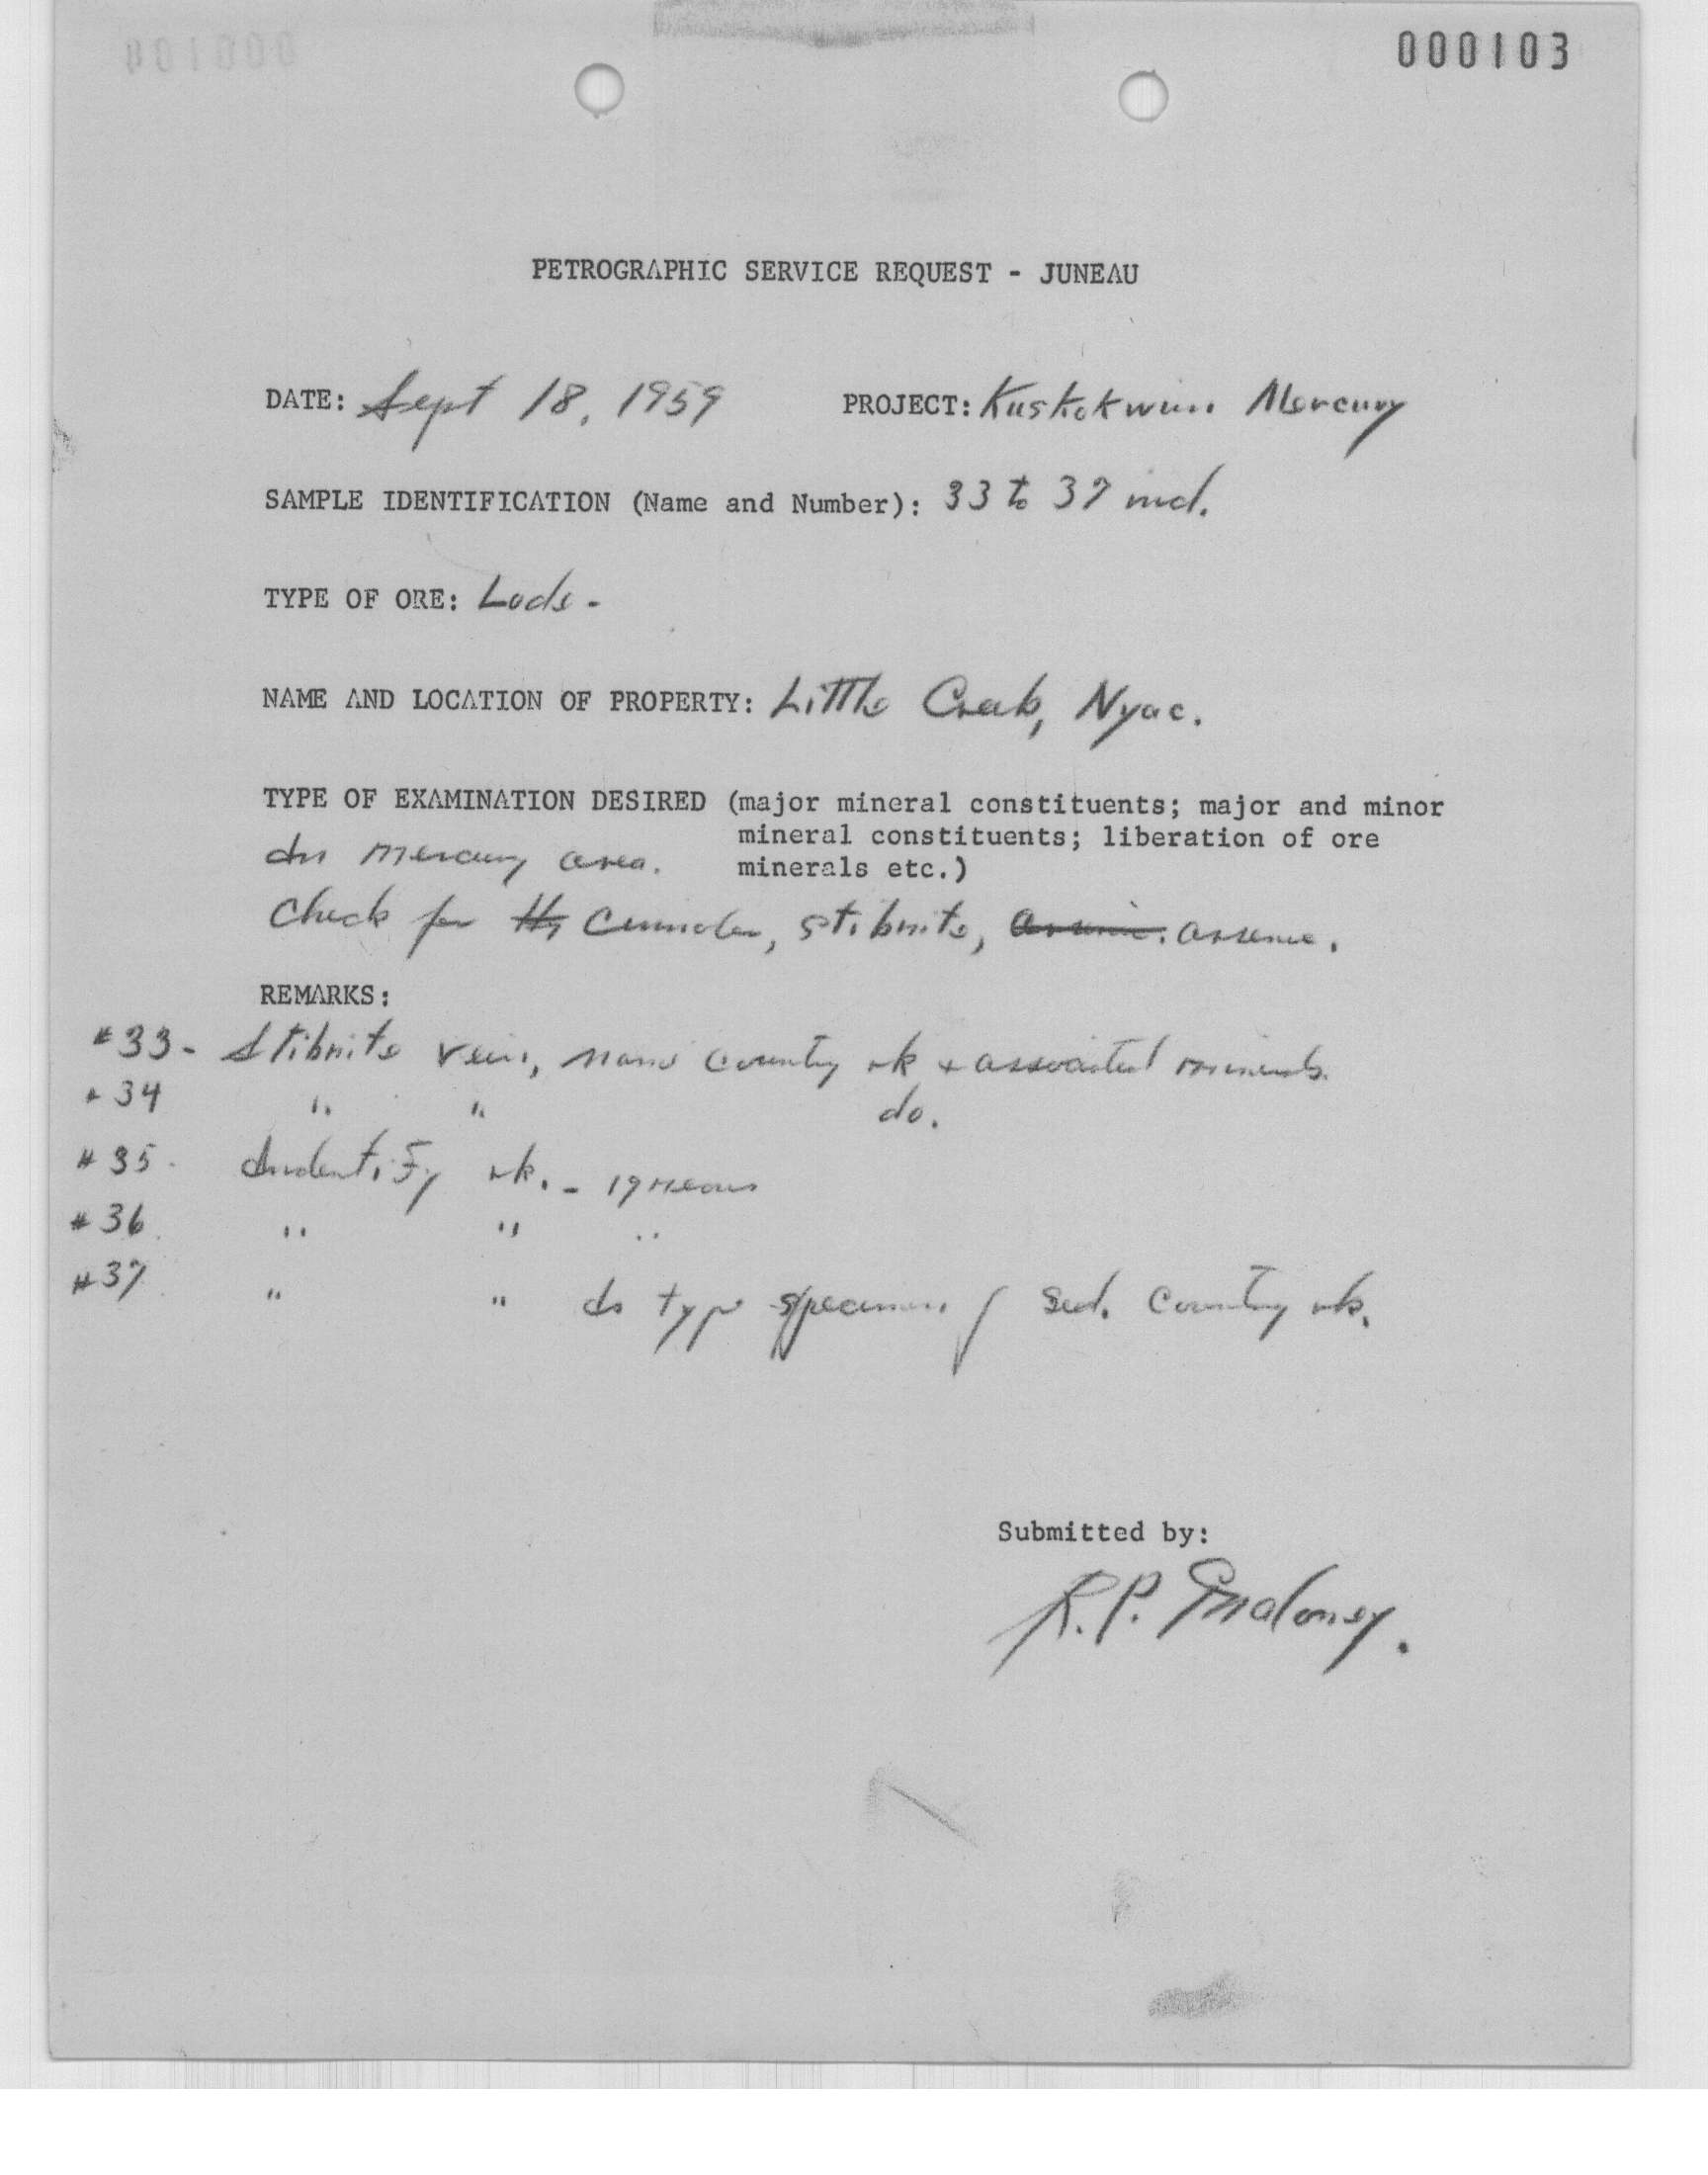 000103
PETROGRAPHIC SERVICE REQUEST - JUNEAU
DATE: Sept 18, 1959 PROJECT: Kuskokwim Mercury
SAMPLE IDENTIFICATION (Name and Number): 33 to 37 incl.
TYPE OF ORE: Lode -
NAME AND LOCATION OF PROPERTY: Little Creek, Nyac.
TYPE OF EXAMINATION DESIRED (major mineral constituents; major and minor
mineral constituents; liberation of ore
In mercury area. minerals etc.)
Check for Hg Cinnabar, stibnite, arsenic. arsenic.
REMARKS:
#33- Stibnite vein, name country rk + associated minerals.
#34 " " do.
#35- Indentify rk. - igneous
#36 " " "
#37 " " Is type specimen of sed. country rk.
Submitted by:
R.P. Maloney.